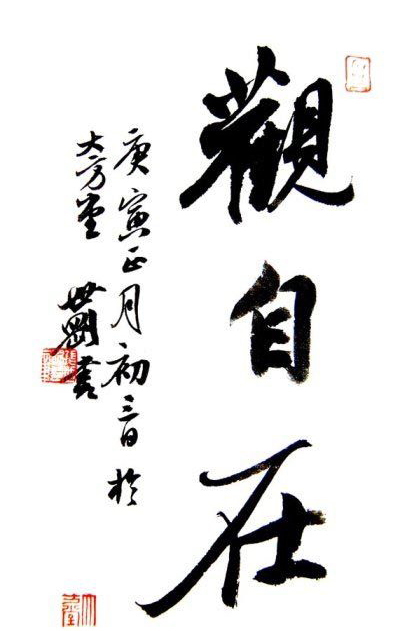 觀自在
庚寅正月初三日於
大方堂 世剛書